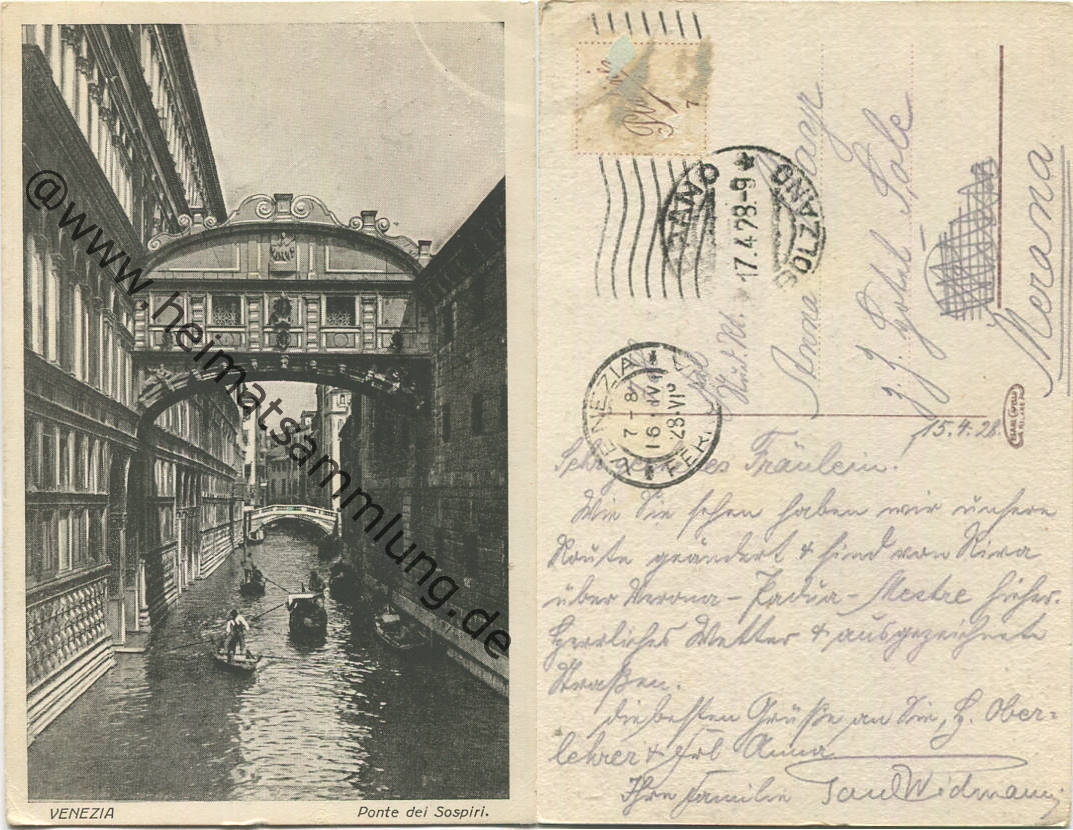 @www.heimatsammlung.de
VENEZIA
Ponte dei Sospiri.
BOLZANO
17.4.28-9
VENEZIA
7-8
16.IV
28.VI
FERR
Anna Mayr
z. Z. Hotel
Merano
15.4.28.
Sehr geehrtes Fräulein!
Wie Sie sehen haben wir unsere
Route geändert & sind von Riva
über Verona - Padua - Mestre hieher.
Herrliches Wetter & ausgezeichnete
Straßen.
Die besten Grüße an Sie, H. Ober=
lehrer & Frl Anna
Ihre Familie Paul Widmann